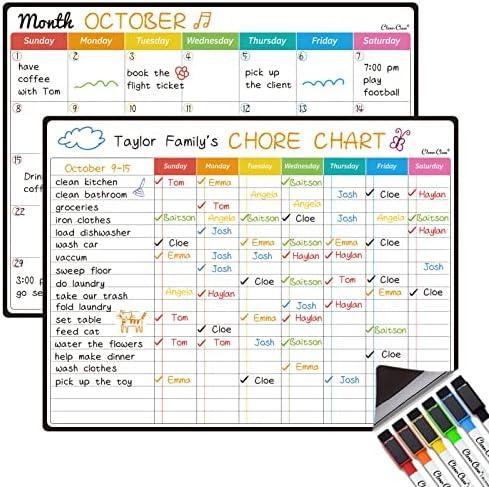 Month OCTOBER
Sunday Monday Tuesday Wednesday Thursday Friday Saturday
1 2 3 4 5 6 7
have coffee with Tom
book the flight ticket
pick up the client
7:00 pm play football
8 9 10 11 12 13 14
15
29
3:00
go se
Taylor Family's CHORE CHART
October 9-15 Sunday Monday Tuesday Wednesday Thursday Friday Saturday
clean kitchen ✓ Tom ✓ Emma ✓Baitson
clean bathroom Angela Josh ✓ Cloe ✓Haylan
groceries ✓ Tom Angela
iron clothes ✓Baitson Angela ✓Baitson ✓ Cloe ✓Baitson Angela ✓Baitson
load dishwasher ✓ Josh ✓Haylan
wash car ✓ Cloe ✓ Emma ✓Baitson ✓ Emma
vaccum ✓ Emma ✓ Josh Josh ✓Haylan ✓Haylan
sweep floor ✓ Josh Josh
do laundry ✓ Cloe ✓Baitson ✓ Tom ✓ Cloe
take our trash Angela ✓Haylan ✓ Emma ✓ Cloe
fold laundry ✓ Josh ✓Haylan
set table ✓ Tom ✓ Emma ✓Haylan
feed cat ✓ Cloe ✓Baitson
water the flowers ✓ Tom ✓ Tom Josh ✓Baitson
help make dinner ✓ Cloe
wash clothes ✓ Emma
pick up the toy ✓ Emma ✓ Cloe ✓ Josh